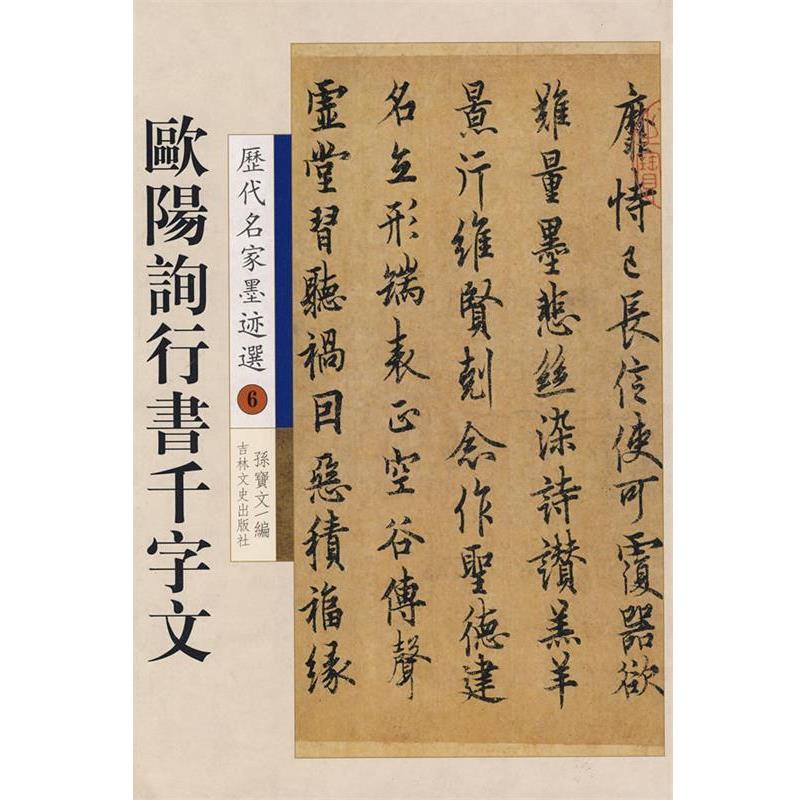 靡恃己長信使可覆器欲
難量墨悲絲染詩讚羔羊
景行維賢剋念作聖德建
名立形端表正空谷傳聲
虛堂習聽禍因惡積福緣
歷代名家墨迹選
6
孫寶文 編
吉林文史出版社
歐陽詢行書千字文